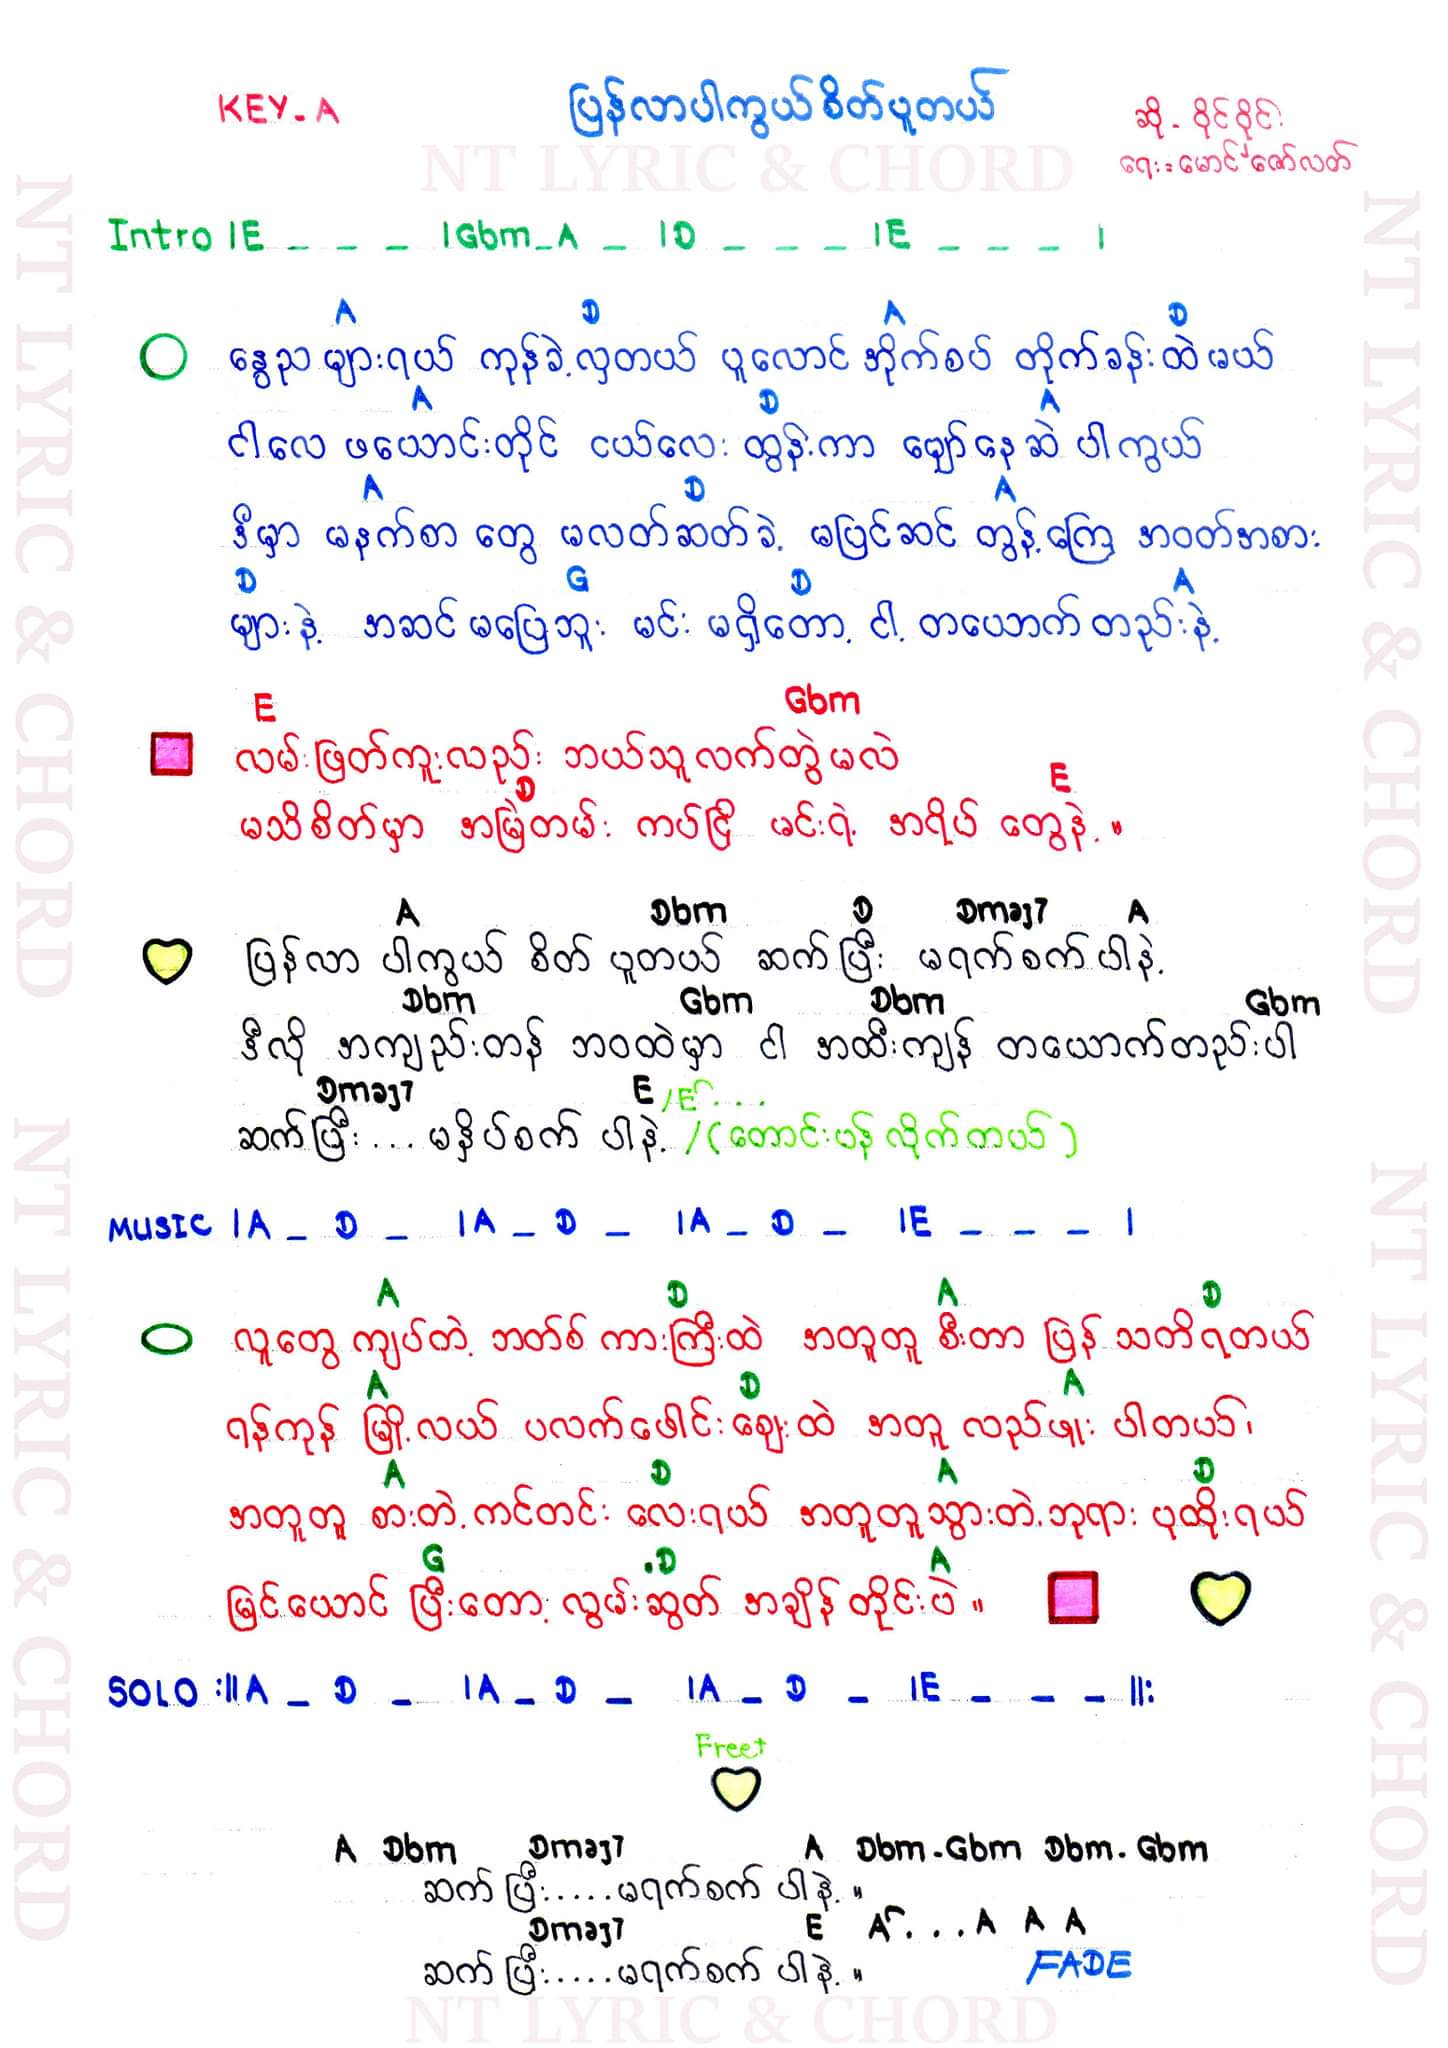 KEY-A
ပြန်လာပါကွယ်စိတ်ပူတယ်
ဆို - ဝိုင်ဝိုင်း
ရေး = မောင်မောင်ဇော်လတ်
NT LYRIC & CHORD
Intro |E _ _ _ |Gbm_A _ |D _ _ _ |E _ _ _ |
A D A D
နွေညများရယ် ကုန်ခဲ့လှတယ် ပူလောင်အိုက်စပ် တိုက်ခန်းထဲမယ်
A D A
ငါလေ ဖယောင်းတိုင် ငယ်လေး ထွန်းကာ မျှော်နေဆဲ ပါကွယ်
A D A
ဒီမှာ မနက်စာ တွေ မလတ်ဆတ်ခဲ့ မပြင်ဆင် တွန့်ကြေ အဝတ်အစား
D G D A
များနဲ့ အဆင်မပြေဘူး မင်း မရှိတော့ ငါ့ တယောက်တည်းနဲ့
E Gbm
လမ်းဖြတ်ကူးလည်း ဘယ်သူလက်တွဲမလဲ
D E
မသိစိတ်မှာ အမြဲတမ်း ကပ်ငြိ မင်းရဲ့ အရိပ် တွေနဲ့ ။
A Dbm D Dmaj7 A
ပြန်လာ ပါကွယ် စိတ် ပူတယ် ဆက်ပြီး မရက်စက်ပါနဲ့
Dbm Gbm Dbm Gbm
ဒီလို အကျည်းတန် ဘဝထဲမှာ ငါ အထီးကျန် တယောက်တည်းပါ
Dmaj7 E /E ...
ဆက်ပြီး ... မနှိပ်စက် ပါနဲ့ /(တောင်းပန်လိုက်တယ်)
MUSIC |A _ D _ |A _ D _ |A _ D _ |E _ _ _ |
A D A D
လူတွေ ကျပ်တဲ့ ဘတ်စ် ကားကြီးထဲ အတူတူ စီးတာ ပြန် သတိရတယ်
A D A
ရန်ကုန် မြို့လယ် ပလက်ဖေါင်းဈေးထဲ အတူ လည်ဖူး ပါတယ်၊
A D A D
အတူတူ စားတဲ့ ကင်တင်း လေးရယ် အတူတူသွားတဲ့ ဘုရား ပုထိုးရယ်
G .D A
မြင်ယောင် ပြီးတော့ လွမ်းဆွတ် အချိန်တိုင်းပဲ ။
SOLO :||A _ D _ |A _ D _ |A _ D _ |E _ _ _ ||:
Free+
A Dbm Dmaj7 A Dbm-Gbm Dbm-Gbm
ဆက်ပြီး ..... မရက်စက် ပါနဲ့ ။
Dmaj7 E A ... A A A
ဆက်ပြီး ..... မရက်စက် ပါနဲ့ ။
FADE
NT LYRIC & CHORD
NT LYRIC & CHORD
NT LYRIC & CHORD
NT LYRIC & CHORD
NT LYRIC & CHORD